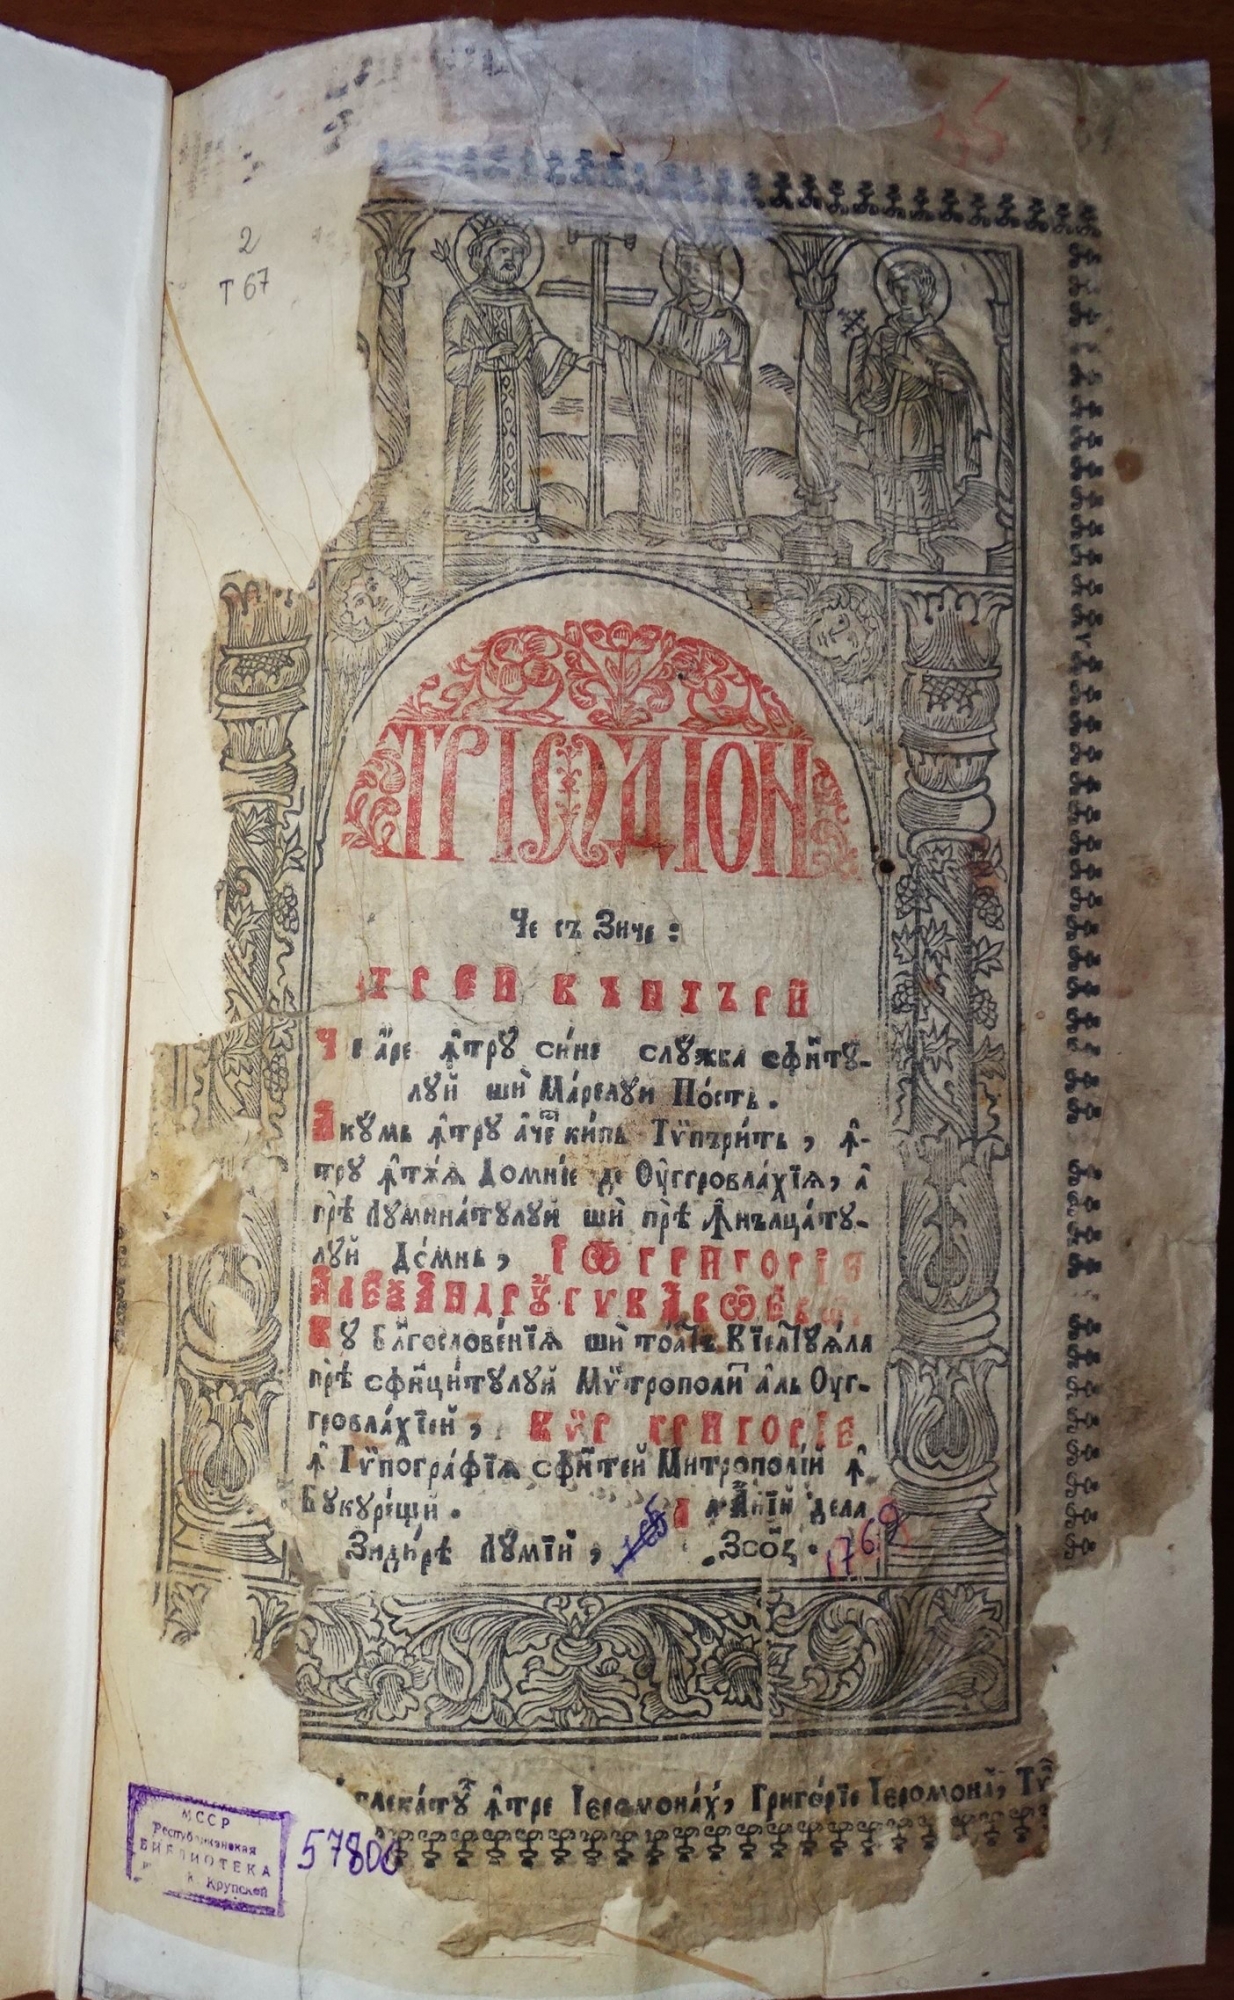 2
Т 67
ТРІѠДІОН
Че съ Зиче:
ТРЕЙ КЪНТЪРЙ
Че а҆́ре ꙟ҆трꙋ сине слꙋжба сфн҃тꙋ-
лꙋй шѝ Ма́релꙋи По́сть.
Акꙋмь ꙟ҆трꙋ а҆че кипь Тѷпъри́ть, ꙟ҆-
трꙋ ꙟ҆тѫѧ Домніе де Оу҆ггровла́хїѧ, а҆
прѣ Лꙋмина́тꙋлꙋй шѝ прѣ Ꙟ҆нълца́тꙋ-
лꙋй До́мнь, ІѠ ГРИГОРІЕ
АЛЕѮАНДРꙊ ГѴКА ВѠЕВѠ
Кꙋ Блгословенїѧ шѝ
прѣ сфн҃ци́тꙋлꙋй Мѷтрополи́ а҆ль Оуг-
гровлахїей, КѴР ГРИГОРІЕ
ꙟ҆ Тѷпогра́фїѧ сфн҃тей Митрополїй ꙟ҆
Бꙋкꙋре́щи. ла А҆́нїй дела
Зиди́рѣ Лꙋмїй, ҂ЗСОЗ. 1769
плека́тꙋ ꙟ҆тре Іеромона́хй, Григо́рїе Іеромона́, Тѷ
МССР
Республиканская
БИБЛИОТЕКА
К. Крупской
57800